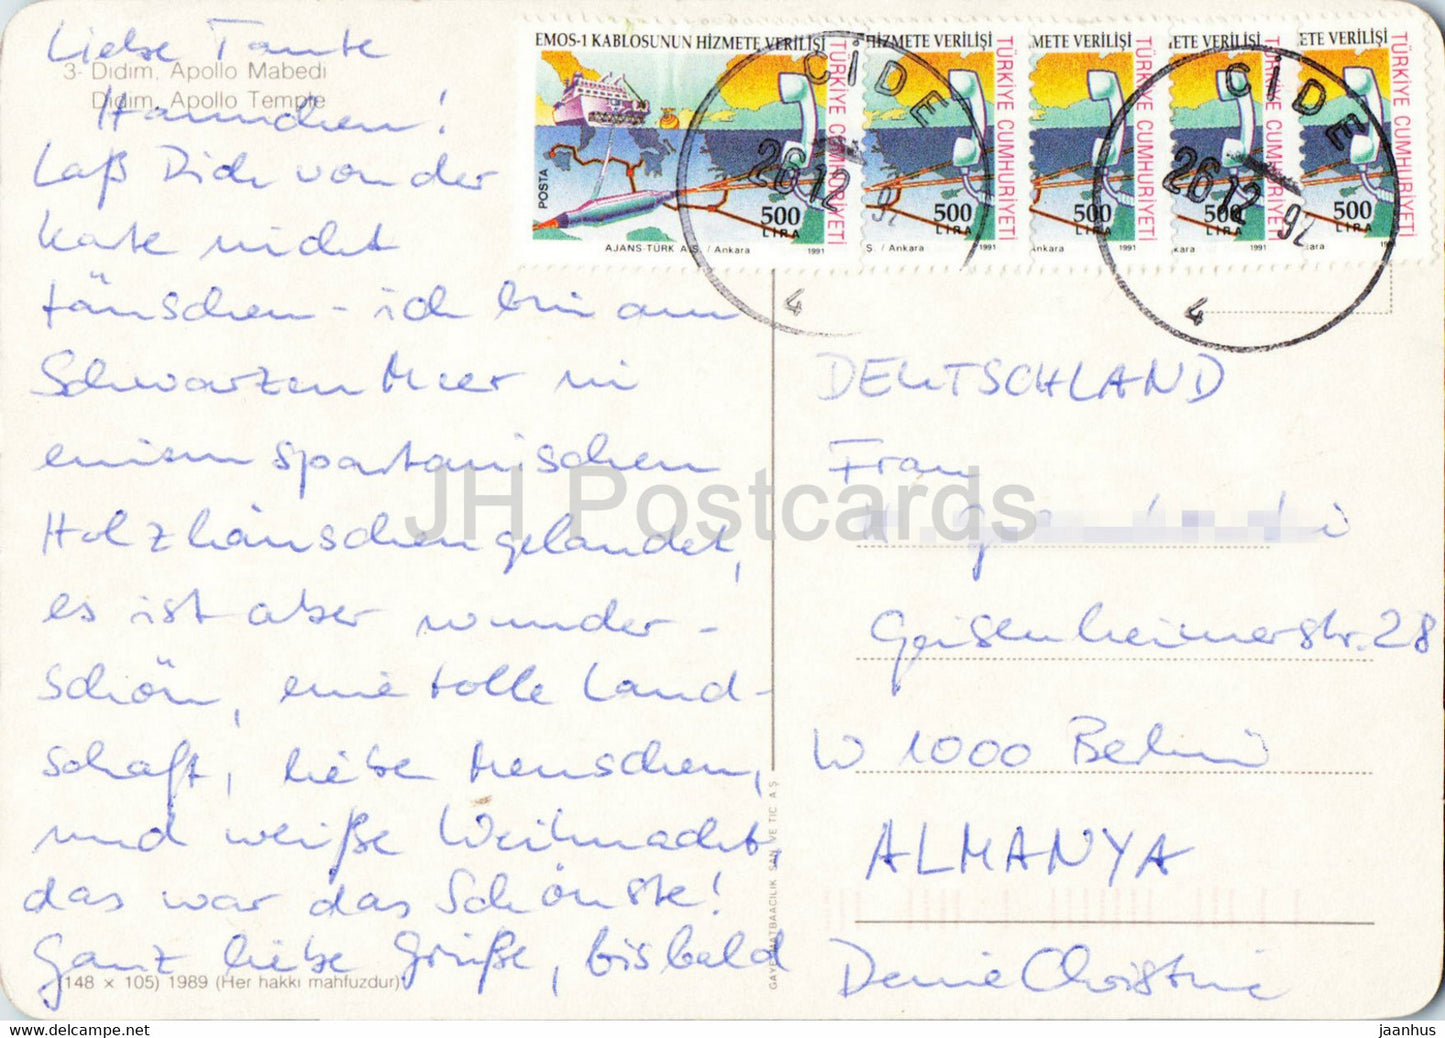 Liebe Tante
3- Didim, Apollo Mabedi
Didim, Apollo Temple
Hannchen!
Laß Dich von der
Karte nicht
täuschen - ich bin am
Schwarzen Meer in
einem spartanischen
Holzhäuschen gelandet,
es ist aber wunder-
schön, eine tolle Land-
schaft, liebe Menschen,
und weiße Weihnacht
das war das Schönste!
Ganz liebe Grüße, bis bald
Deine Christine
(148 x 105) 1989 (Her hakkı mahfuzdur)
GAYE MATBAACILIK SAN. VE TİC A.Ş
EMOS-1 KABLOSUNUN HİZMETE VERİLİŞİ
HİZMETE VERİLİŞİ
METE VERİLİŞİ
ETE VERİLİŞİ
ETE VERİLİŞİ
TÜRKİYE CUMHURİYETİ
TÜRKİYE CUMHURİYETİ
TÜRKİYE CUMHURİYETİ
TÜRKİYE CUMHURİYETİ
TÜRKİYE CUMHURİYETİ
POSTA
500 LİRA
500 LİRA
500 LİRA
500 LİRA
500 LİRA
AJANS-TÜRK A.Ş. / Ankara 1991
Ş. / Ankara 1991
nkara 1991
kara 1991
1991
CİDE
26 12 92
4
CİDE
26 12 92
4
DEUTSCHLAND
Frau
Geisenheimerstr. 28
W 1000 Berlin
ALMANYA
JH Postcards
www.delcampe.net
jaanhus